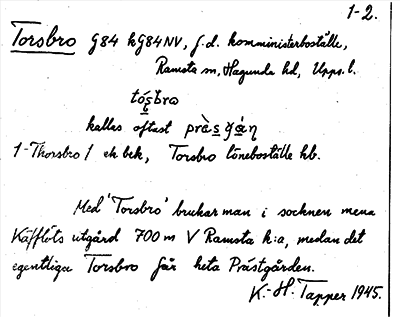 1-2.
Torsbro G84 kG84NV, f.d. komministerboställe,
Ramsta sn, Hagunda hd, Upps. l.
tós̲bro
kallas oftast prɛ̀s̲gáṇ
1 - Thorsbro / ek bek, Torsbro löneboställe hb.
Med "Torsbro" brukar man i socknen mena
Käfflöts utgård 700 m V Ramsta k:a, medan det
egentliga Torsbro får heta Prästgården.
K.-H. Tapper 1945.